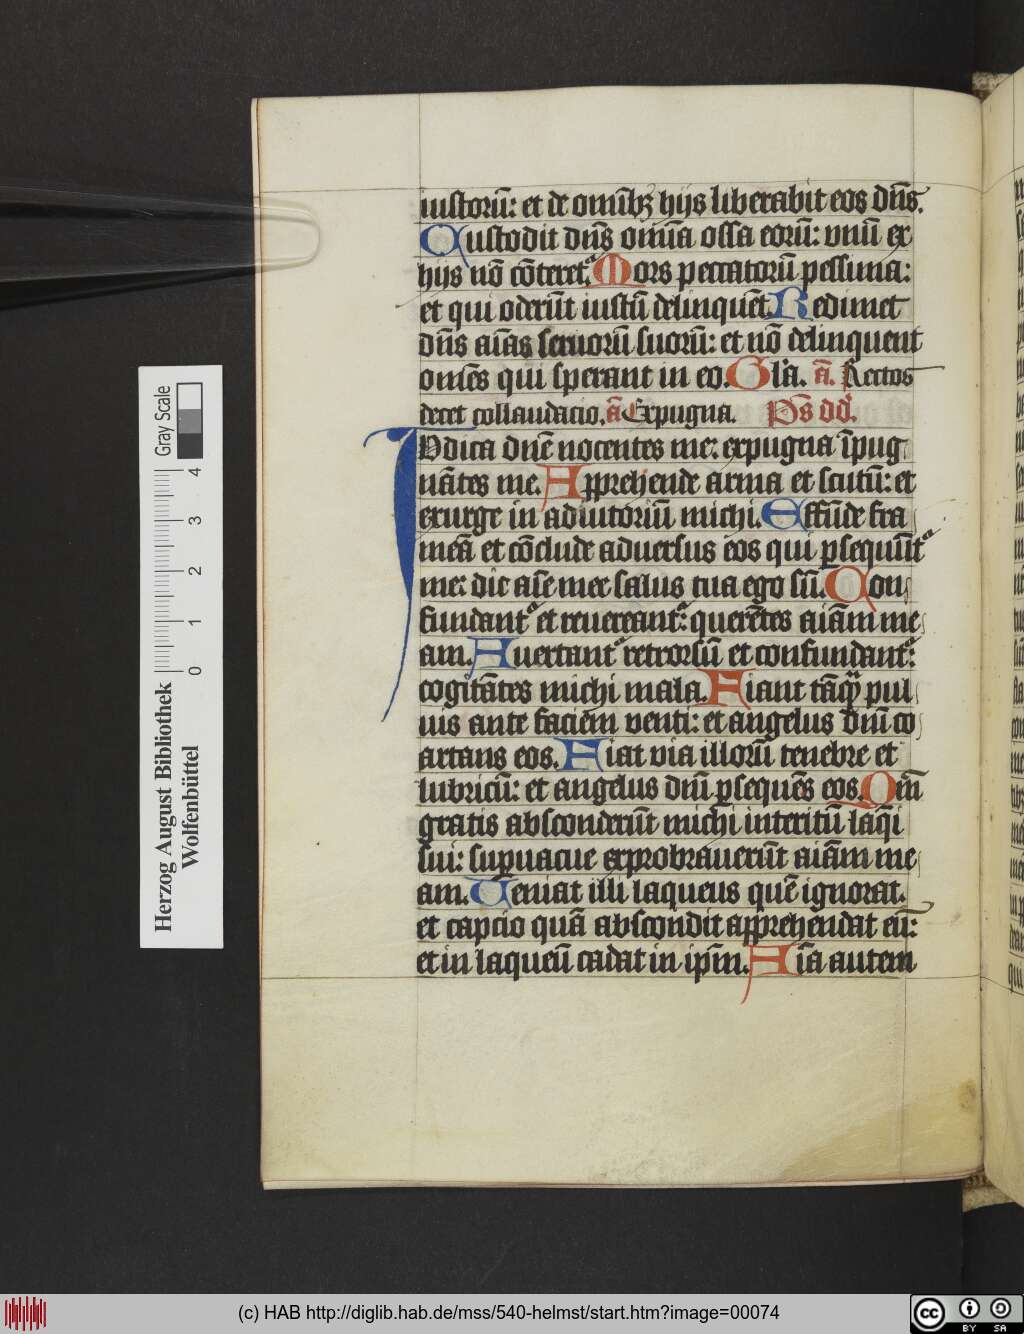 iustorū: et de omībꝫ hijs liberabit eos dn̄s.
Custodit dn̄s omīa ossa eorū: vnū ex
hijs nō cōteret᷑. Mors peccatorū pessima:
et qui oderūt iustū delinquēt. Redimet
dn̄s aīas seruorū suorū: et nō delinquent
om̄es qui sperant in eo. Gl'a. a͞. Rectos
decet collaudacio. a͞ Expugna. Ps̄ dd̄.
Iudica dn̄e nocentes me: expugna īpug
nātes me. Apprehende arma et scutū: et
exurge in adiutoriū michi. Effūde fra
meā et cōclude aduersus eos qui ꝑsequūt᷑
me: dic aīe mee salus tua ego sū. Con
fundant᷑ et reuereant᷑: querētes aīam me
am. Auertant᷑ retrorsū et confundant᷑:
cogitātes michi mala. Fiant tāqꝫ pul
uis ante faciem venti: et angelus dn̄i co
artans eos. Fiat via illorū tenebre et
lubricū: et angelus dn̄i ꝑsequēs eos. Qm̄
gratis absconderūt michi interitū laq̄i
sui: supuacue exprobrauerūt aīam me
am. Veniat illi laqueus quē ignorat.
et capcio quā abscondit apprehendat eū:
et in laqueū cadat in ip̄m. Aīa autem
Herzog August Bibliothek
Wolfenbüttel
0 1 2 3 4
Gray Scale
(c) HAB http://diglib.hab.de/mss/540-helmst/start.htm?image=00074
cc BY SA